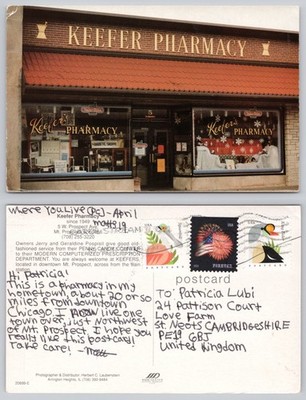 KEEFER PHARMACY
Keefer's PHARMACY
5
Keefer's PHARMACY
Where you Live (DSJ-April
Matt519
Keefer Pharmacy
since 1949
5 W. Prospect Ave
Mt. Prospect
(708) 255-3220
Owners Jerry and Geraldine Pospreil give good old-
fashioned service from their PENNY CANDY COUNTER
to their MODERN COMPUTERIZED PRESCRIPTION
DEPARTMENT. You are always welcome at KEEFERS,
located in downtown Mt. Prospect, across from the
Hi Patricia!
This is a pharmacy in my
hometown about 20 or so
miles from downtown
Chicago. I now live one
town over, just Northwest
of Mt. Prospect. I hope you
really like this postcard!
Take care! -Matt
postcard
To Patricia Lubi
24 Pattison Court
Love Farm
St. Neots CAMBRIDGESHIRE
PE19 6BJ
United Kingdom
Photographer & Distributor: Herbert C. Lauterstein
Arlington Heights, IL